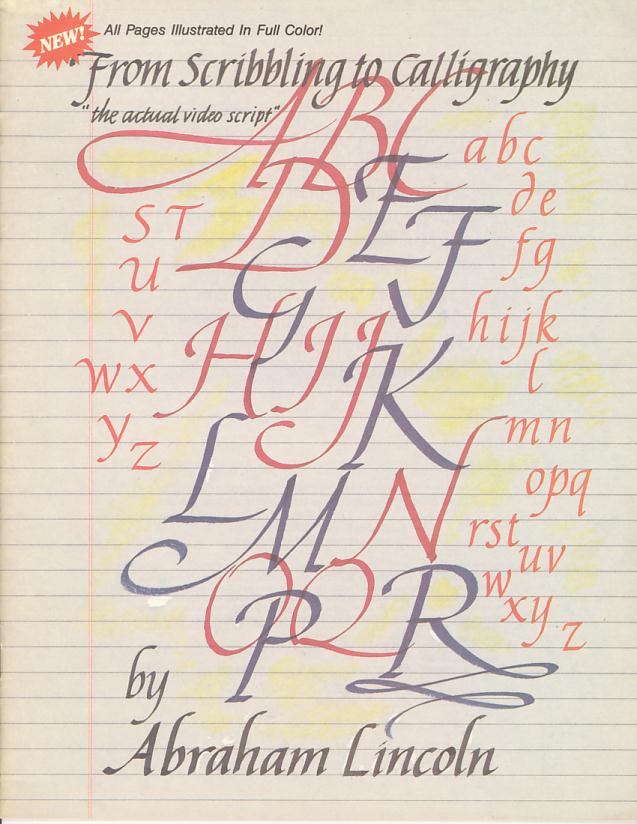 NEW!
All Pages Illustrated In Full Color!
From Scribbling to Calligraphy
"the actual video script"
A B C
D E F
G
H I J
K
L
M N
O Q
P R
S T
U
V
W X
Y Z
a b c
d e
f g
h i j k
l
m n
o p q
r s t
u v
w
x y
z
by
Abraham Lincoln